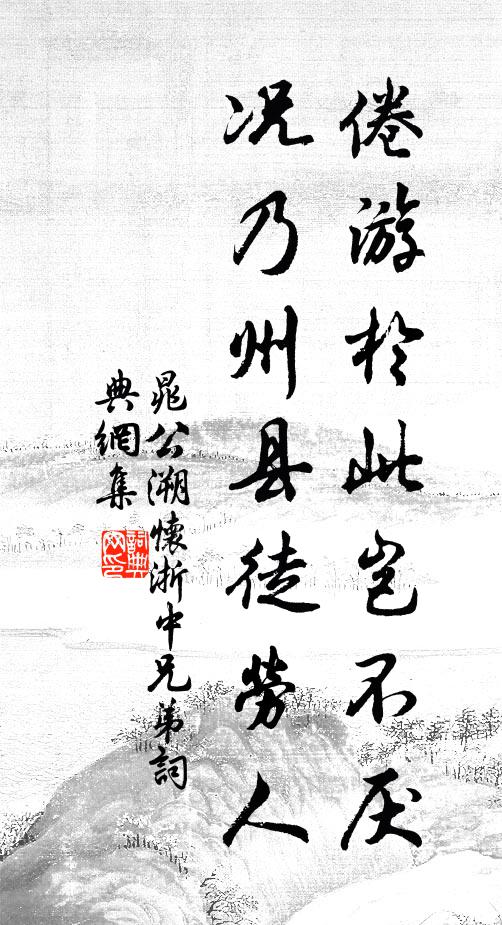 倦游於此岂不厌
况乃州县徒劳人
晁公溯懷浙中兄弟詞
典網集
詞典網印